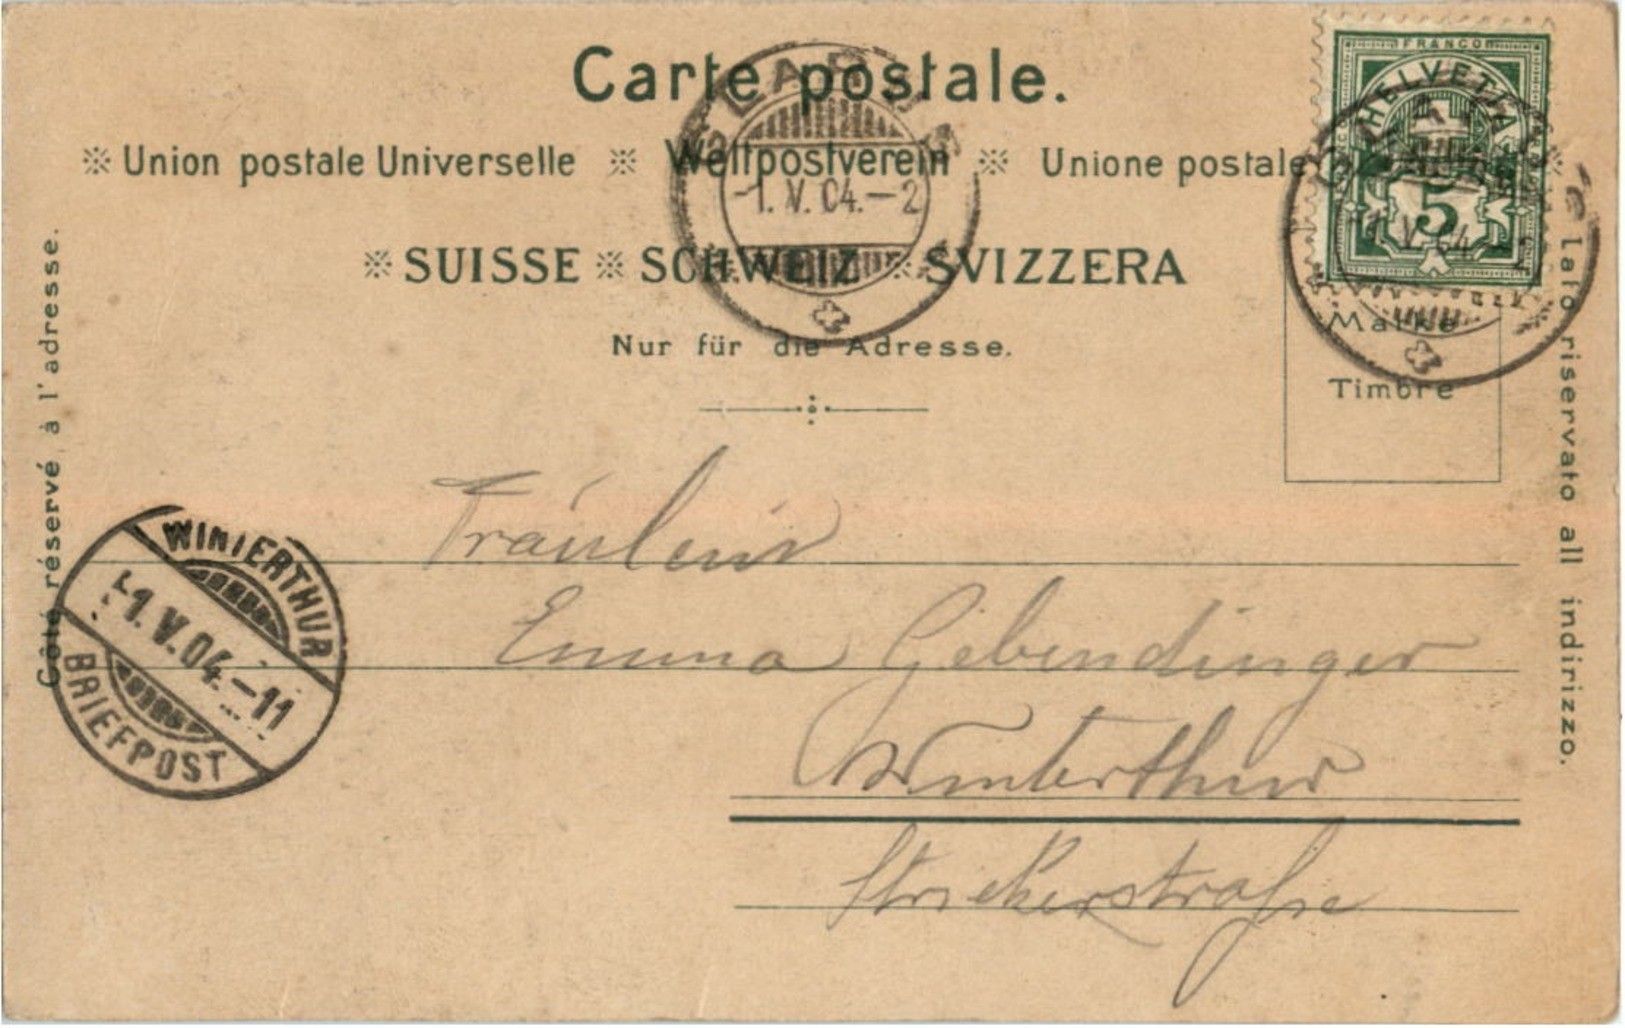 Carte postale.
Union postale Universelle ※ Weltpostverein ※ Unione postale
SUISSE ※ SCHWEIZ ※ SVIZZERA
Nur für die Adresse.
Côté réservé à l'adresse.
Lato riservato all indirizzo.
FRANCO
HELVETIA
5
Marke
Timbre
GLARUS
-1.V.04.-2
GLARUS
1.V.04.-2
WINTERTHUR
-1.V.04.-11
BRIEFPOST
Fräulein
Emma Gebendinger
Winterthur